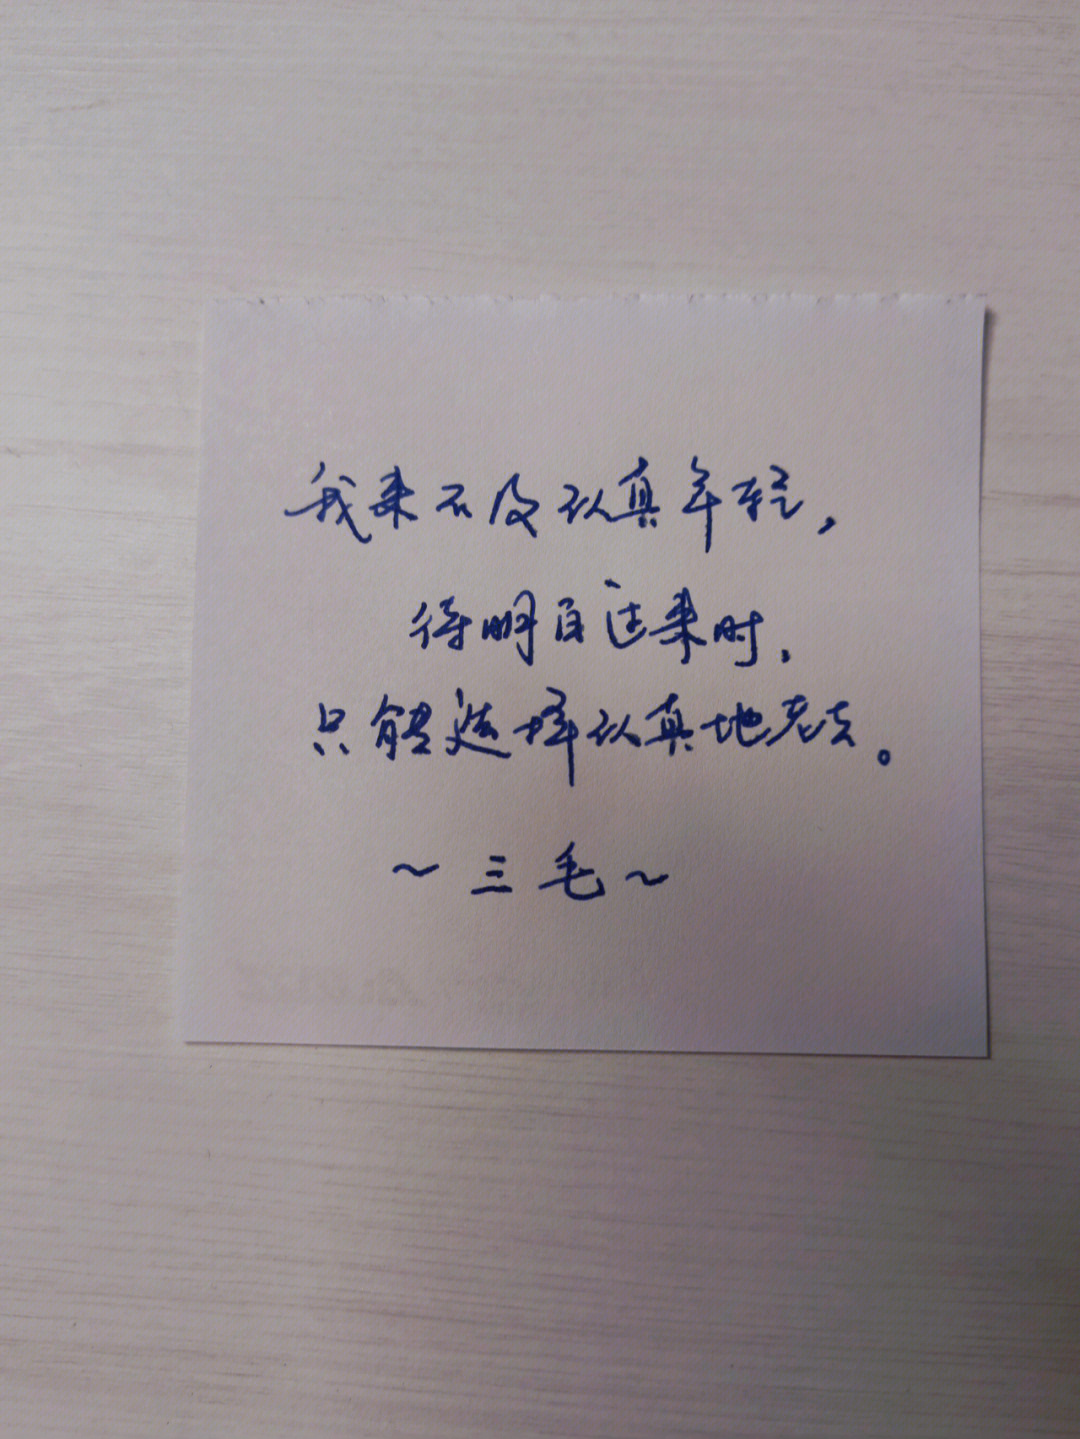 我来不及认真年轻，
待明白过来时，
只能选择认真地老去。
~三毛~